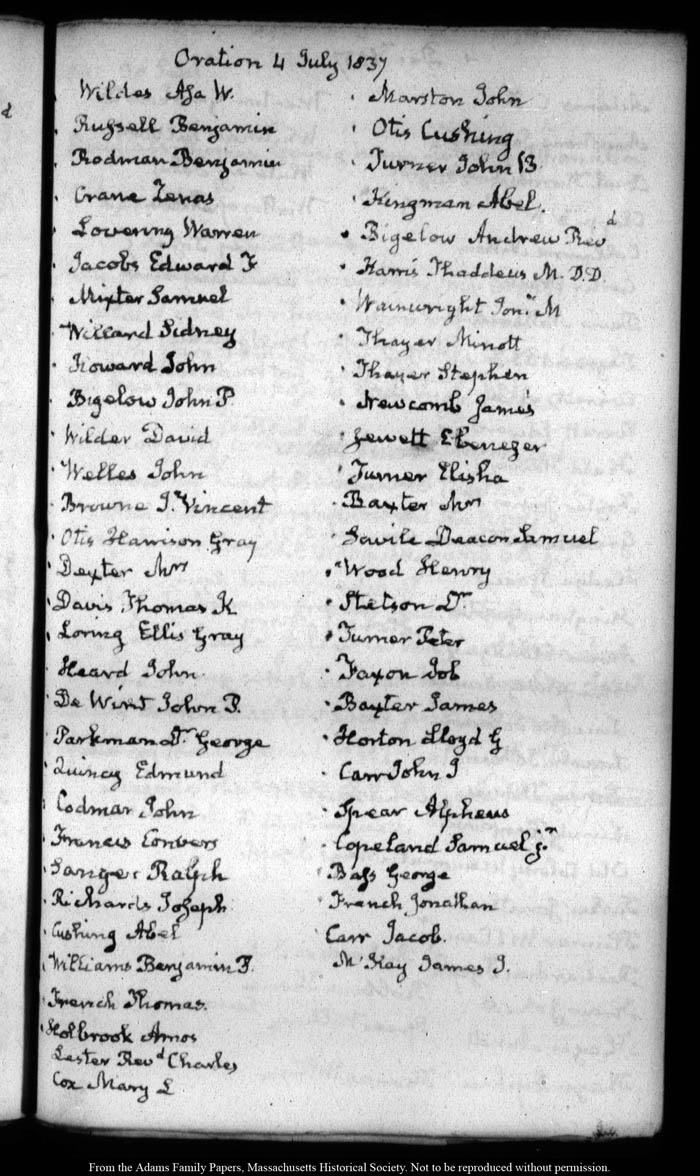 Oration 4 July 1837
Wildes Asa W.
Russell Benjamin
Rodman Benjamin
Crane Zenas
Lovering Warren
Jacobs Edward F
Mixter Samuel
Willard Sidney
Howard John
Bigelow John P.
Wilder David
Welles John
Browne J. Vincent
Otis Harrison Gray
Dexter Mrs
Davis Thomas K
Loring Ellis Gray
Heard John
De Wint John P.
Parkman Dr George
Quincy Edmund
Codman John
Francis Convers
Sanger Ralph
Richards Joseph
Cushing Abel
Williams Benjamin P.
French Thomas.
Holbrook Amos
Lester Revd Charles
Cox Mary L
Marston John
Otis Cushing
Turner John B.
Kingman Abel.
Bigelow Andrew Revd
Harris Thaddeus M. D.D.
Wainwright Jon.n M
Thayer Minott
Thayer Stephen
Newcomb James
Jewett Ebenezer
Turner Elisha
Baxter Mrs
Savile Deacon Samuel
Wood Henry
Stetson Dr
Turner Peter
Faxon Job
Baxter James
Horton Lloyd G
Carr John J
Spear Alpheus
Copeland Samuel jr
Bass George
French Jonathan
Carr Jacob.
McKay James J.
From the Adams Family Papers, Massachusetts Historical Society. Not to be reproduced without permission.